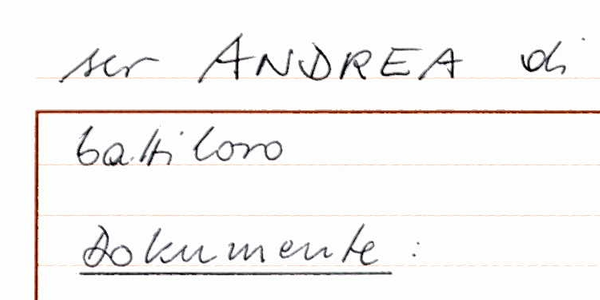 ser ANDREA di
battiloro
Dokumente :